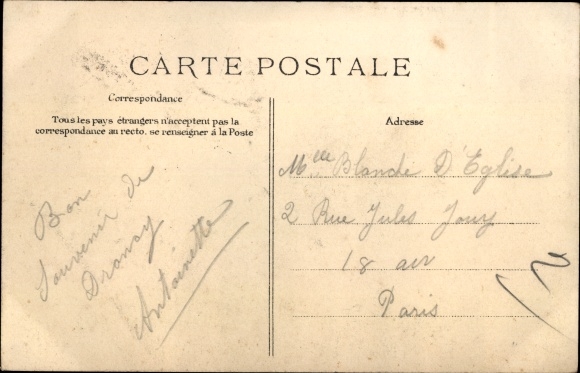 CARTE POSTALE
Correspondance
Tous les pays étrangers n'acceptent pas la
correspondance au recto. se renseigner à la Poste
Adresse
Bon
Souvenir de
Drancy
Antoinette
Mlle Blanche D'Eglise
2 Rue Jules Jouy
18 arr
Paris